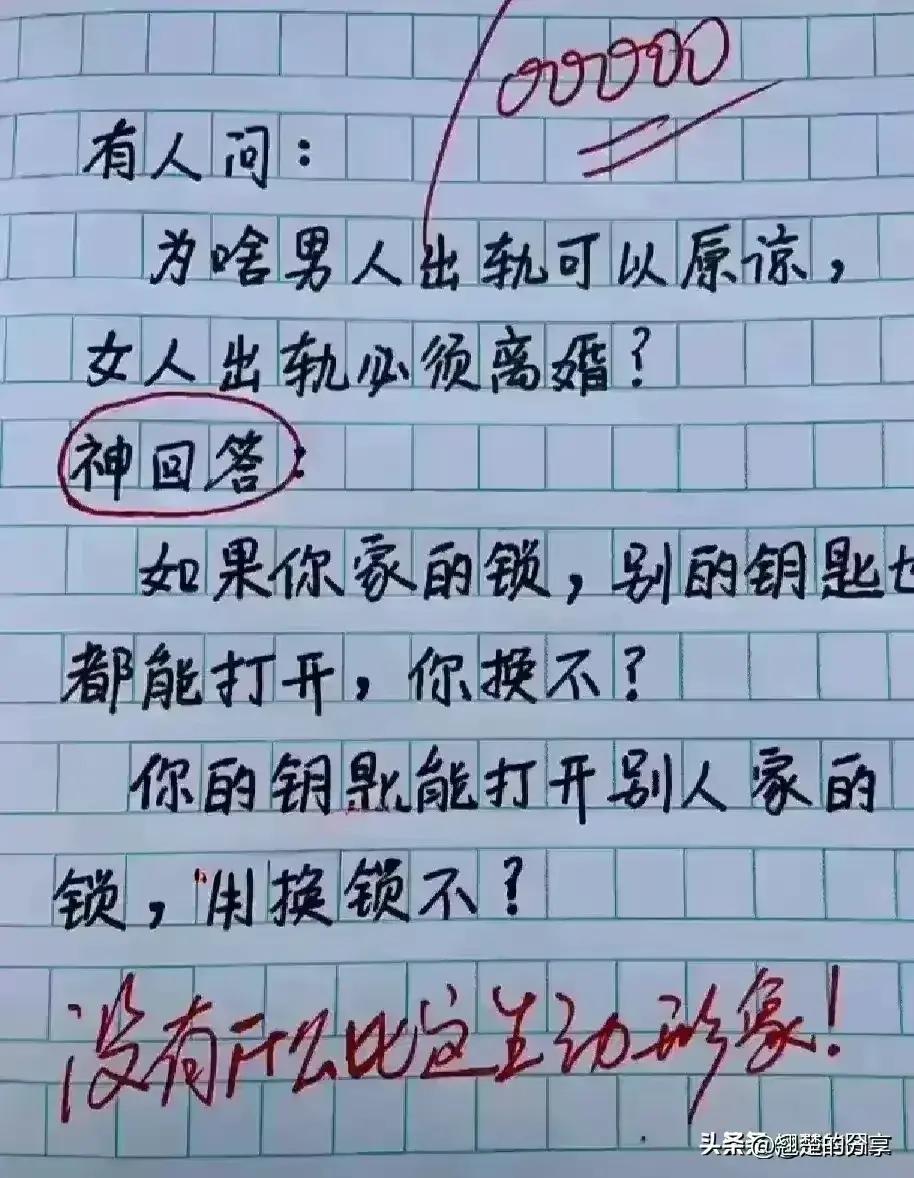 有人问：
为啥男人出轨可以原谅，
女人出轨必须离婚？
神回答：
如果你家的锁，别的钥匙也
都能打开，你换不？
你的钥匙能打开别人家的
锁，用换锁不？
没有什么比这生动形象！
头条 @翘楚的分享